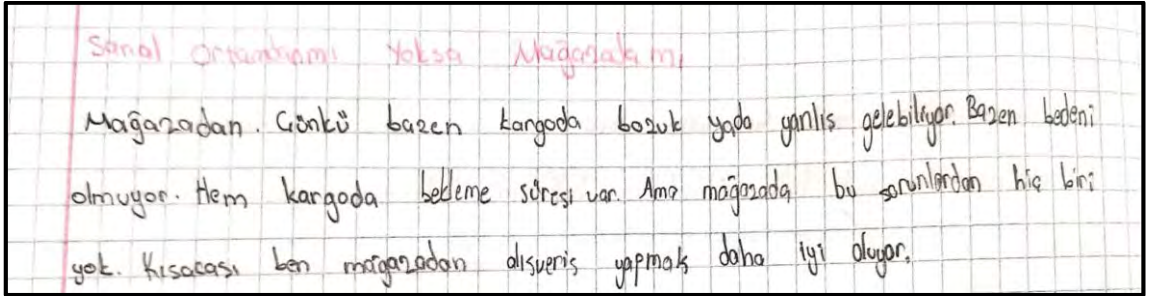 Sanal Ortamdanmı Yoksa Mağazadamı
Mağazadan. Çünkü bazen kargoda bozuk yada yanlıs gelebiliyor. Bazen bedeni
olmuyor. Hem kargoda bekleme süresi var. Ama mağazada bu sorunlardan hiç biri
yok. Kısacası ben mağazadan alısveris yapmak daha iyi oluyor.